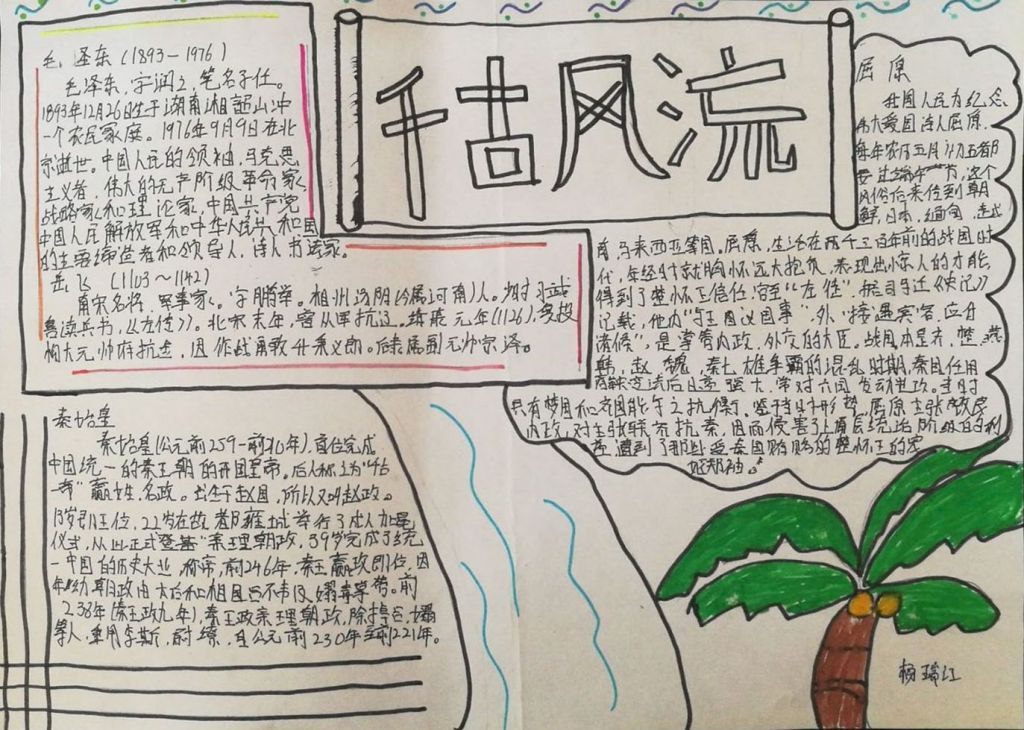 千古风流
毛泽东（1893－1976）
毛泽东，字润之，笔名子任。
1893年12月26日生于湖南湘韶山冲
一个农民家庭。1976年9月9日在北
京逝世。中国人民的领袖，马克思
主义者，伟大的无产阶级革命家，
战略家和理论家，中国共产党
中国人民解放军和中华人民共和国
的主要缔造者和领导人，诗人书法家。
岳飞（1103～1142）
南宋名将，军事家，字鹏举。相州汤阴(今属河南)人。少时习武
喜读兵书，《左传》。北宋末年，从军抗辽。靖康元年(1126)，
大元帅府抗金，因作战勇敢升秉义郎。后隶属副元帅宗泽。
屈原
我国人民为纪念
伟大爱国诗人屈原，
每年农历五月初五都
要过端午节，这个
风俗后来传到朝
鲜，日本，缅甸，越
南，马来西亚等国，屈原，生活在两千三百年前的战国时
代，年经时就胸怀远大抱负，表现出惊人的才能，
得到了楚怀王信任，官至“左徒”，据司马迁《史记》
记载，他内“与王图议国事”，外，“接遇宾客，应对
诸侯”，是掌管内政，外交的大臣。战国本是齐，楚，燕
韩，赵，魏，秦七雄争霸的混乱时期，秦国任用
商鞅变法后日益强大，常对六国发动进攻。当时
只有楚国和齐国能与之抗衡，鉴于当时形势，屈原主张改良
内政，对主张联齐抗秦，因而侵害了上层统治阶级的利
益，遭到了那些受秦国贿赂的楚怀王的宠
秦始皇
秦始皇(公元前259－前210年)，首位完成
中国统一的秦王朝的开国皇帝。后人称之为“千古
一帝”嬴姓，名政。出生于赵国，所以又叫赵政。
13岁即王位，22岁在故都雍城举行了成人加冕
仪式，从此正式登基“亲理朝政，39岁完成了统
一中国的历史大业，称帝，前246年，秦王嬴政即位，因
年幼朝政由太后和相国吕不韦及嫪毐掌管。前
238年(秦王政九年)，秦王政亲理朝政，除掉吕，嫪
等人，重用李斯，尉缭，自公元前230年至前221年。
杨瑞江